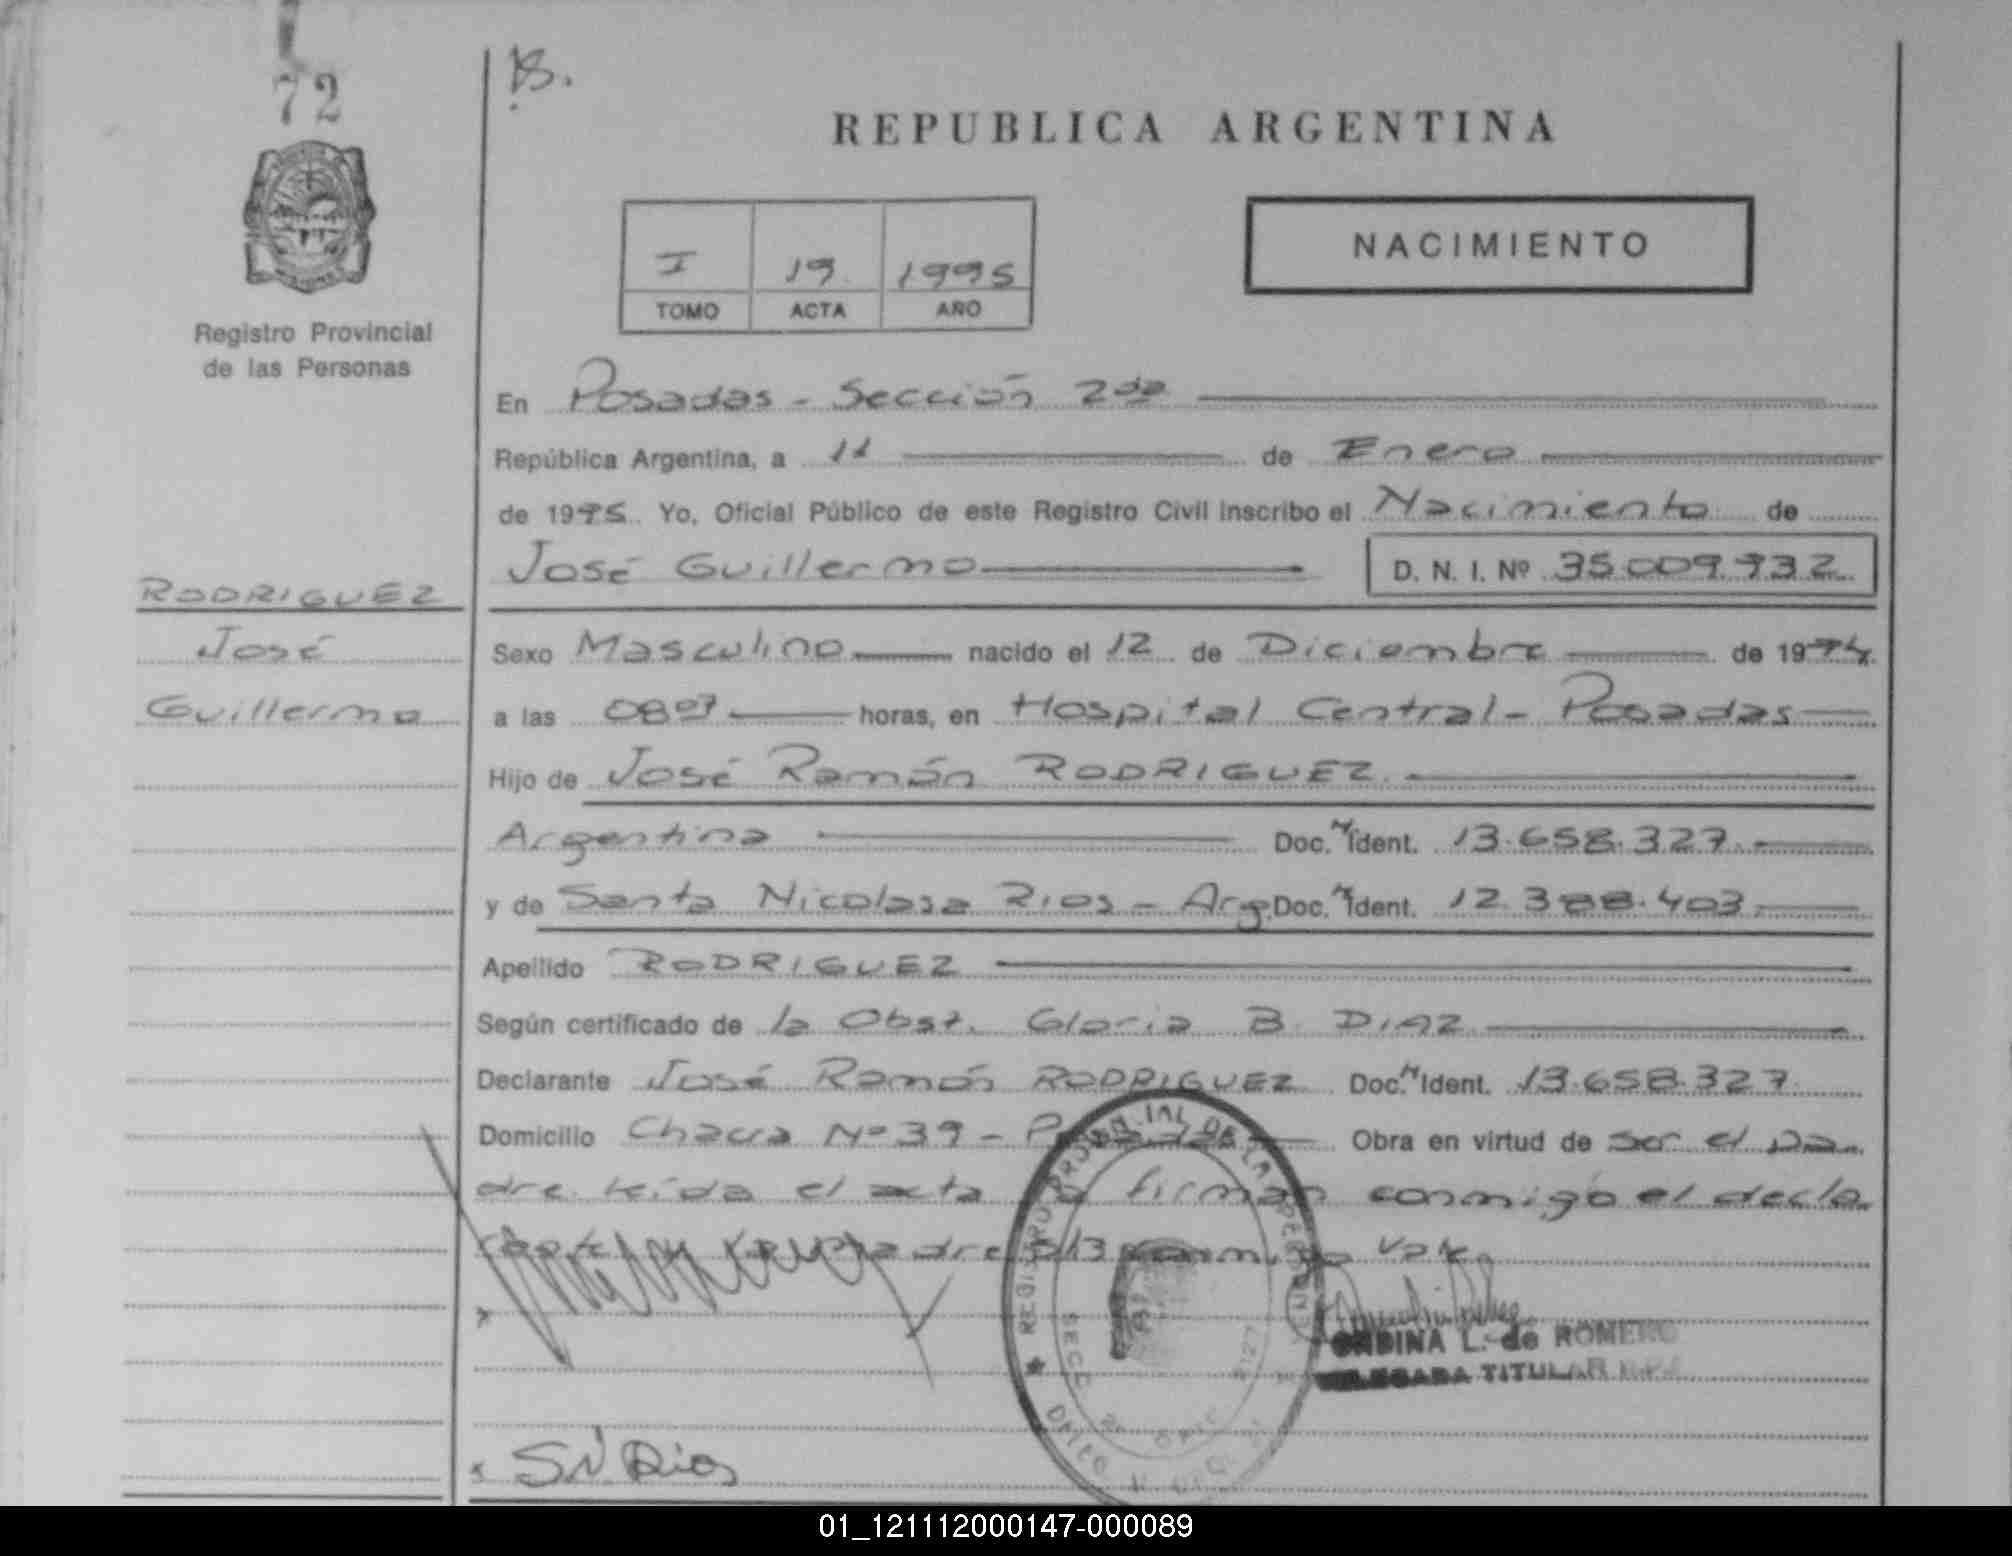 72
B.
REPUBLICA ARGENTINA
I 19 1995
TOMO ACTA AÑO
NACIMIENTO
Registro Provincial
de las Personas
En Posadas - Sección 2da
República Argentina, a 11 de Enero
de 1995. Yo, Oficial Público de este Registro Civil inscribo el Nacimiento de
José Guillermo D. N. I. Nº 35.009.932
RODRIGUEZ
José
Guillermo
Sexo Masculino nacido el 12 de Diciembre de 1994
a las 0807 horas, en Hospital Central - Posadas
Hijo de José Ramón RODRIGUEZ
Argentina Doc. N Ident. 13.658.327
y de Santa Nicolasa Rios - Arg. Doc. N Ident. 12.388.403
Apellido RODRIGUEZ
Según certificado de la Obst. Gloria B. DIAZ
Declarante José Ramón RODRIGUEZ Doc. N Ident. 13.658.327
Domicilio Chacra Nº 39 - Posadas Obra en virtud de ser el pa-
dre. Leída el acta la firman conmigo el decla-
madre Vale
REGISTRO PROVINCIAL DE LAS PERSONAS
SECC
ONDINA L. de ROMERO
DELEGADA TITULAR R.P.
SN Rios
01_121112000147-000089